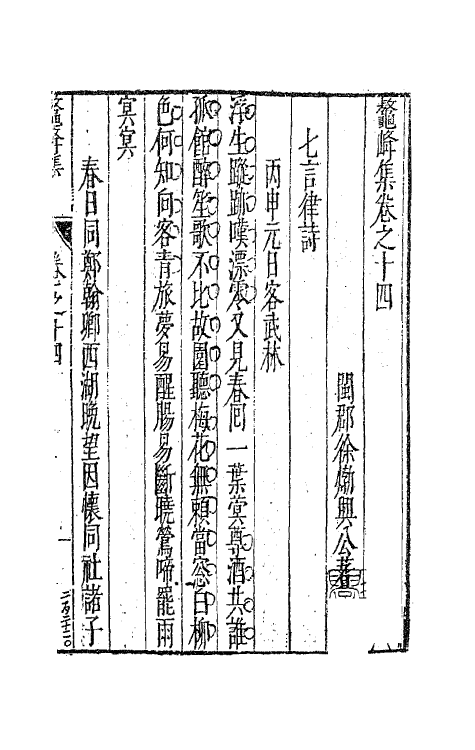 鼇峰集卷之十四
閩郡徐㷆興公著
七言律詩
丙申元日客武林
浮生蹤跡嘆漂零又見春回一葉蓂尊酒共誰
孤館醉笙歌不比故園聽梅花無賴當窓白柳
色何知向客青旅夢易醒腸易斷曉鶯啼罷雨
冥冥
春日同鄭翰卿西湖晚望因懷同社諸子
鼇峰集
卷之十四
一